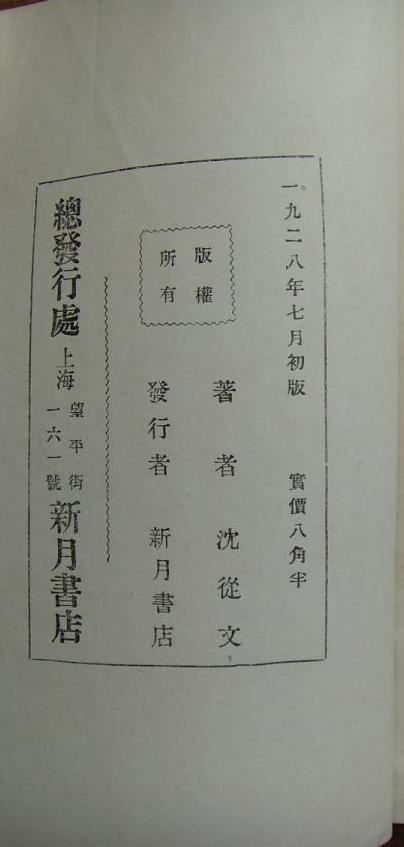 一九二八年七月初版 實價八角半
版權
所有
著者 沈從文
發行者 新月書店
總發行處 上海 望平街
一六一號 新月書店